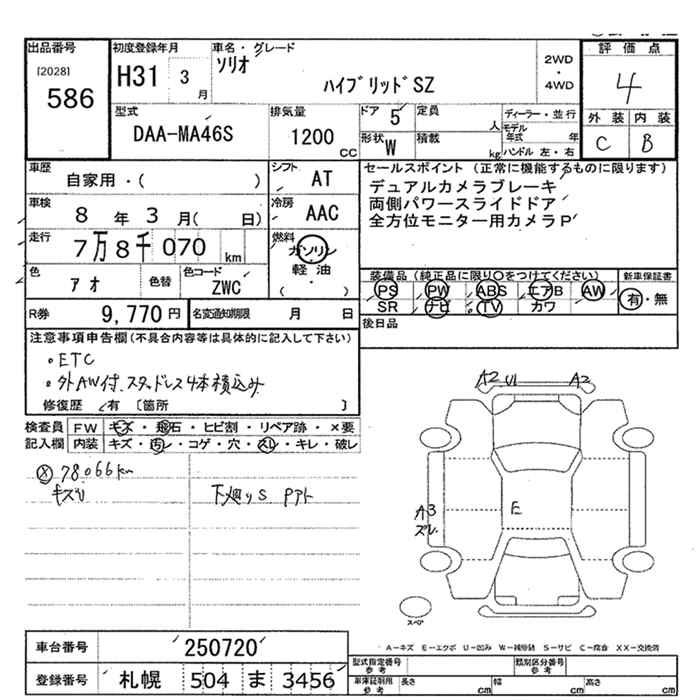 出品番号 初度登録年月 車名・グレード 評価点
[2028] ソリオ 2WD
586 H31 3 月 ハイブリッドSZ ・ 4WD 4
型式 排気量 ドア 5 定員 人 ディーラー・並行 外装 内装
DAA-MA46S 1200 CC 形状 W 積載 kg モデル年式 年 ハンドル 左・右 C B
車歴 自家用・( ) シフト AT セールスポイント (正常に機能するものに限ります)
車検 8 年 3 月( 日) 冷房 AAC デュアルカメラブレーキ
両側パワースライドドア
走行 7万8千070 km 燃料 ガソリン 全方位モニター用カメラP
軽油
・
( )
色 アオ 色替 色コード ZWC 装備品(純正品に限り○をつけてください) 新車保証書
PS PW ABS エアB AW 有・無
R券 9,770円 名変通知期限 月 日 SR ナビ TV カワ
注意事項申告欄(不具合内容等は具体的に記入して下さい) 後日品
・ETC
・外AW付.スタッドレス4本積込み
修復歴 有 〔箇所 〕
A2 U1 A2
検査員 FW キズ・飛石・ヒビ割・リペア跡・×要
記入欄 内装 キズ・汚レ・コゲ・穴・スレ・キレ・破レ
78066km
キズU
A3
ズレ
E
スペア
A-キズ E-エクボ U-凹み W-補修跡 S-サビ C-腐食 XX-交換済
車台番号 250720 型式指定番号 参考 類別区分番号 参考
登録番号 札幌 504 ま 3456 車庫証明用 参考 長さ cm 幅 cm 高さ cm